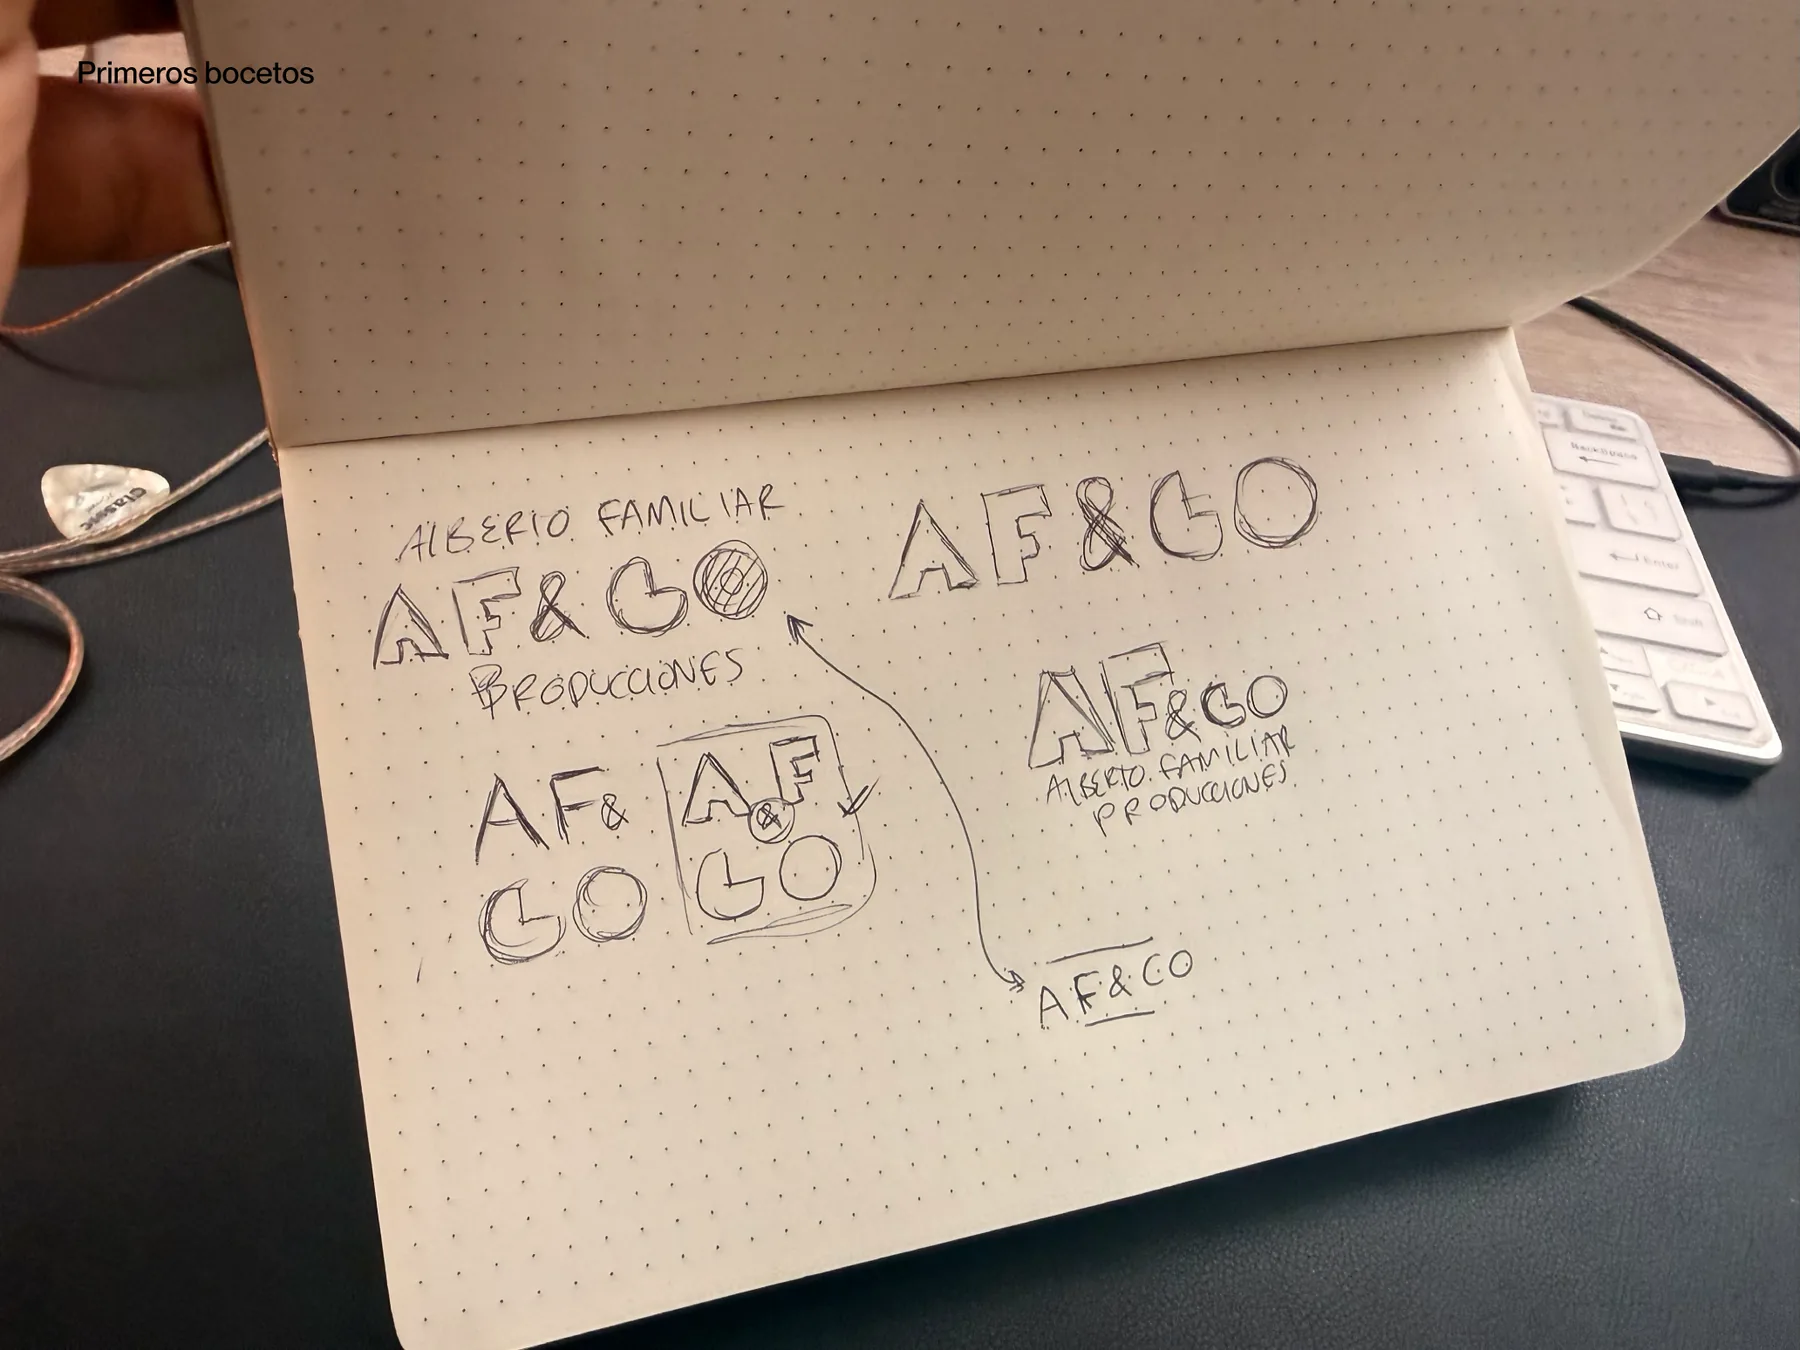 Primeros bocetos
ALBERTO FAMILIAR
AF&CO
PRODUCCIONES
AF&
CO
AF
&
CO
AF&CO
AF&CO
ALBERTO FAMILIAR
PRODUCCIONES
AF&CO
Classic
Backspace
Enter
Shift